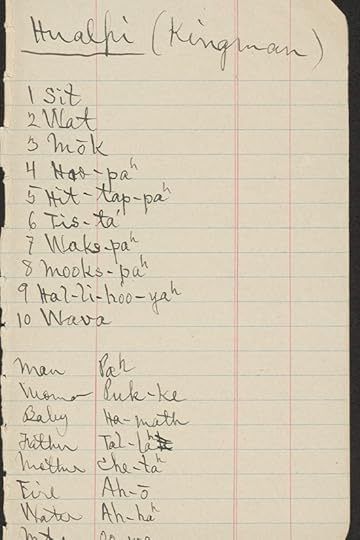 Hualpi (Kingman)
1 Sit
2 Wat
3 Mōk
4 Hoo-paʰ
5 Hit-tap-paʰ
6 Tis-ta'
7 Waks-paʰ
8 Mooks-paʰ
9 Hal-li-hoo-yaʰ
10 Wava
Man Paʰ
Woman Puk-ke
Baby Ha-math
Father Tal-laʰ
Mother Che-taʰ
Fire Ah-ō
Water Ah-haʰ